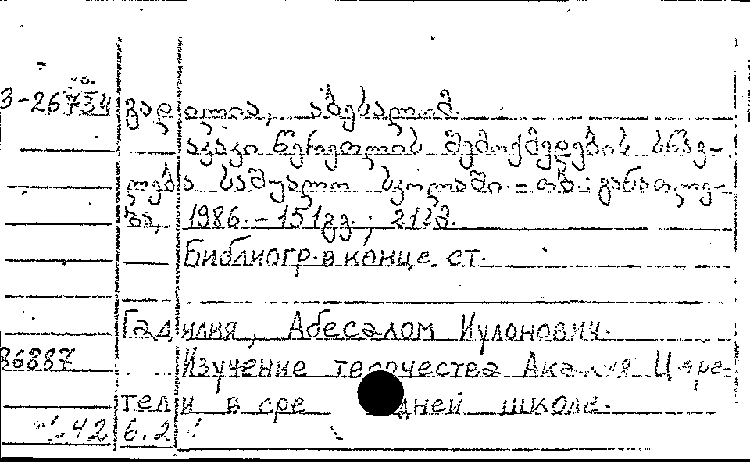 3-26754 გადილია, აბესალომ.
აკაკი წერეთლის შემოქმედების სწავ-
ლება საშუალო სკოლაში. - თბ.: განათლე-
ბა, 1986. - 151გვ.; 21სმ.
Библиогр. в конце ст.
Гадилия, Абесалом Иулонович.
86887 Изучение творчества Акакия Цере-
тели в сре дней школе.
42 6.2